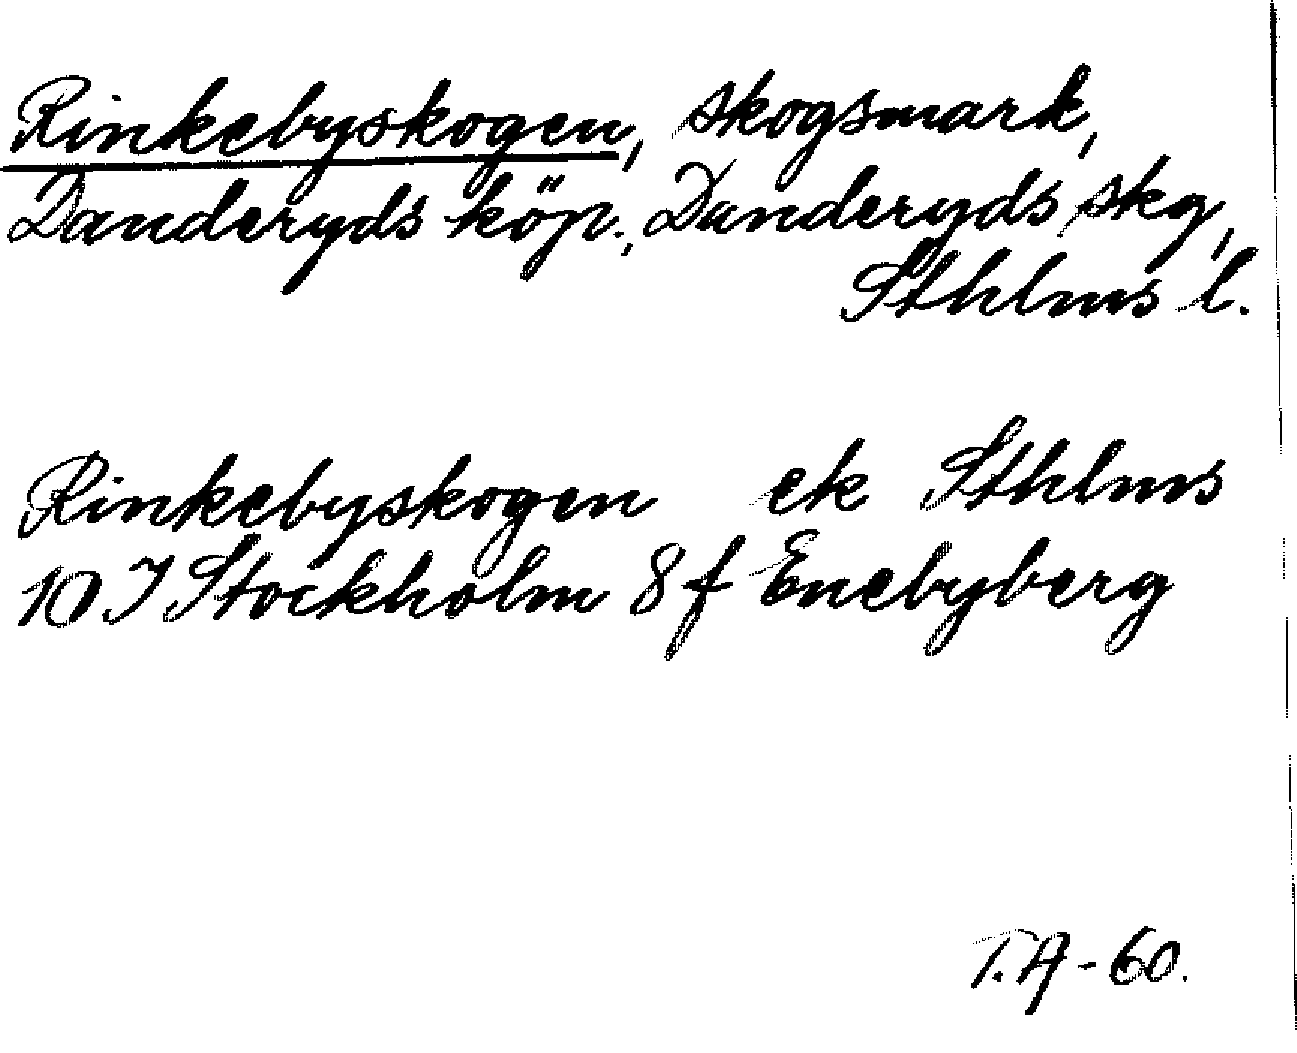 Rinkebyskogen, skogsmark,
Danderyds köp., Danderyds skg,
Sthlms l.
Rinkebyskogen ek Sthlms
10 I Stockholm 8 f Enebyberg
T.A-60.